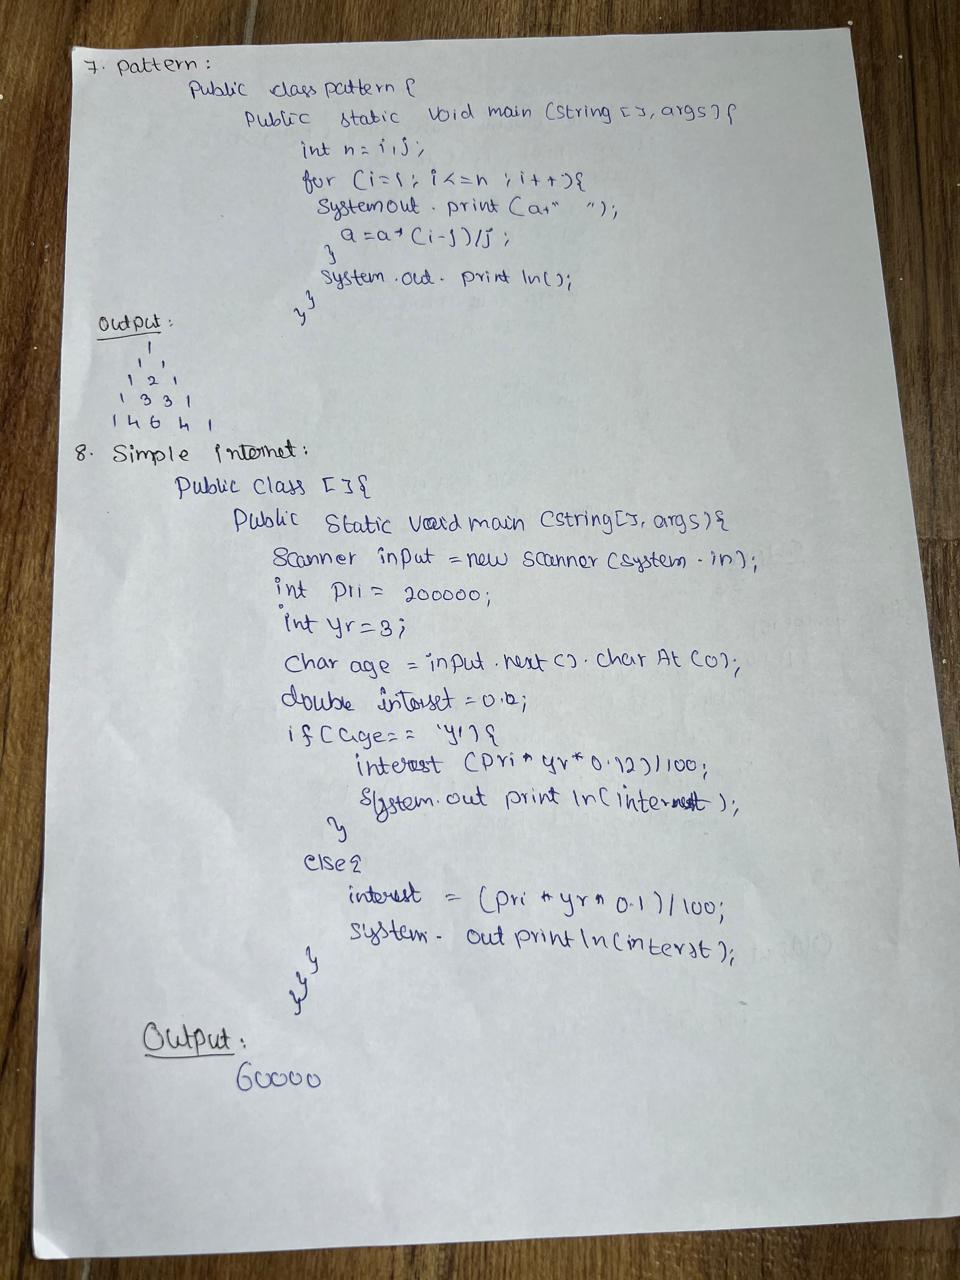 7. Pattern:
Public class pattern {
Public static void main (String [], args) {
int n = i,j;
for (i=1; i<=n ; i++){
System out . print (a+" ");
a = a * (i-j)/j ;
}
System . out . print ln();
}
}
Output:
1
1 1
1 2 1
1 3 3 1
1 4 6 4 1
8. Simple internet:
Public class [ ]{
Public static void main (String[], args){
Scanner input = new scanner (system . in);
int pri = 200000;
int yr = 3;
Char age = input . next (). char At (0);
double interset = 0.0;
if (age== 'y'){
interest (pri * yr * 0.12)/100;
System.out print ln(internest);
}
else{
interest = (pri * yr * 0.1)/100;
system. out print ln(interst);
}
}
}
Output:
60000